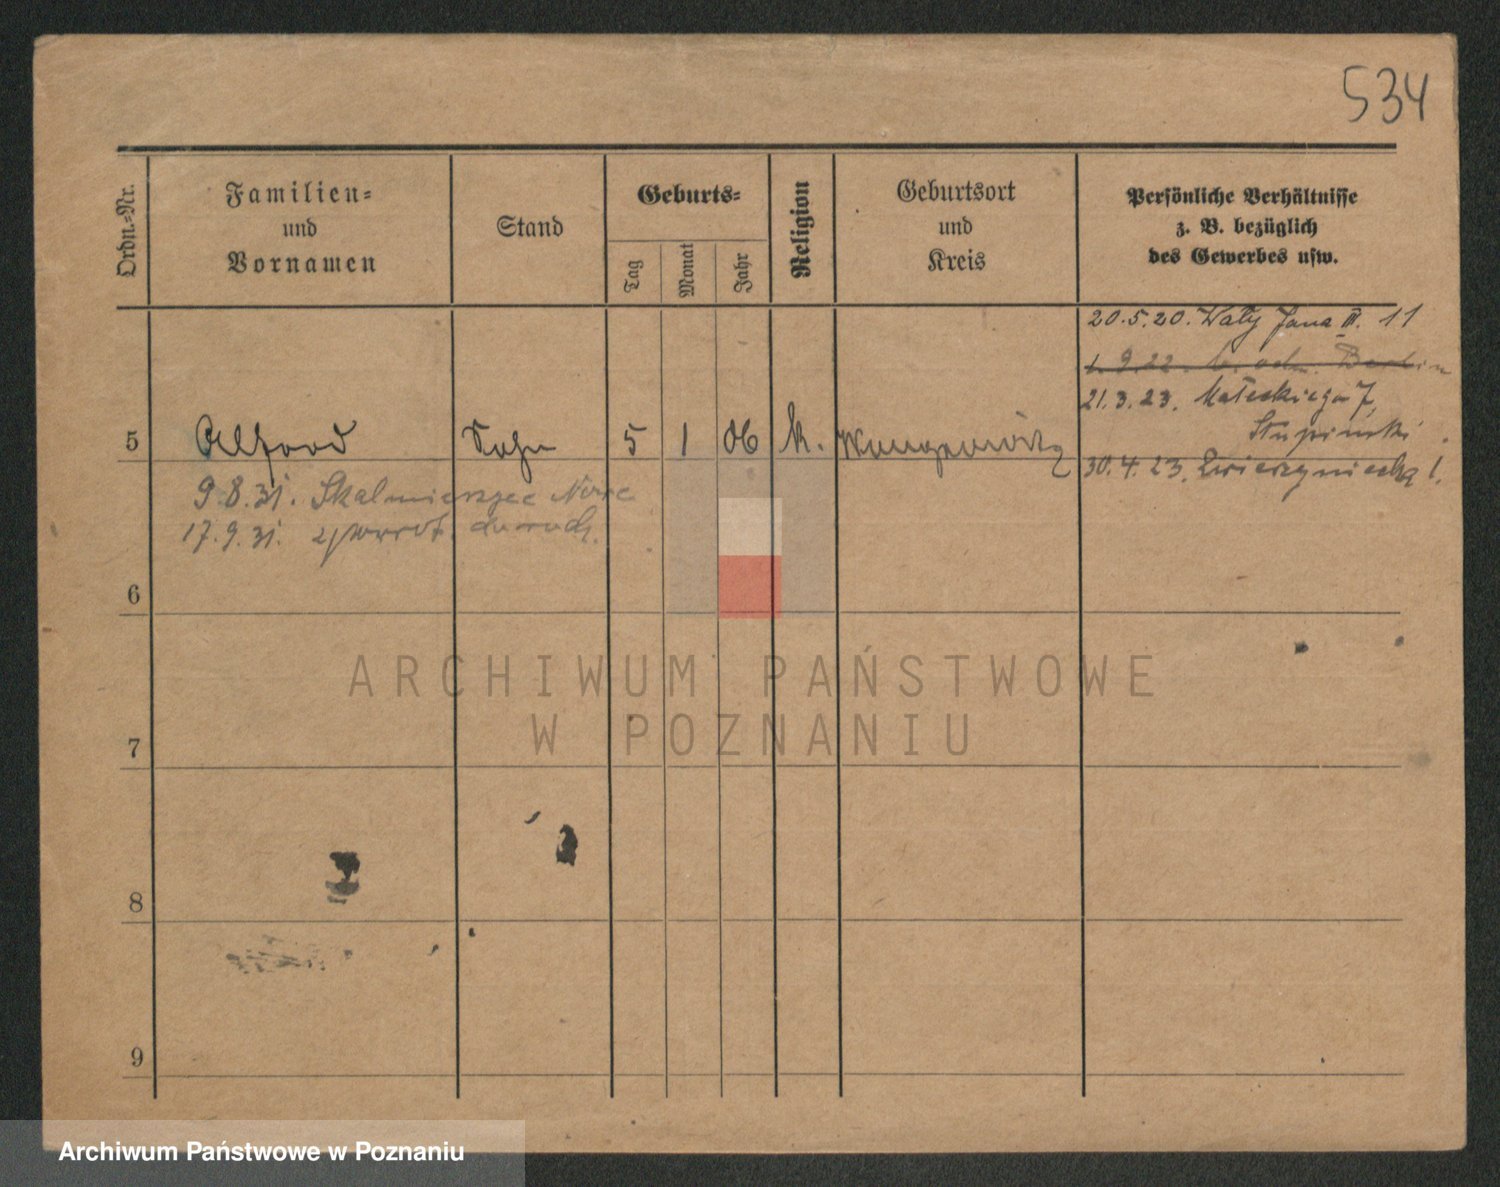 534
Ordn.-Nr.
Familien-
und
Vornamen
Stand
Geburts-
Tag
Monat
Jahr
Religion
Geburtsort
und
Kreis
Persönliche Verhältnisse
z. B. bezüglich
des Gewerbes usw.
20.5.20. Wały Jana III. 11
1.9.22. Berlin
21.3.23. Małeckiego 7,
Stupinski
5 Alfred Sohn 5 1 06 k. Wongrowitz
30.4.23. Zwierzyniecka 1.
9.8.31. Skalmierzyce Nowe
17.9.31. zpowrot.
6
7
8
9
ARCHIWUM PAŃSTWOWE
W POZNANIU
Archiwum Państwowe w Poznaniu